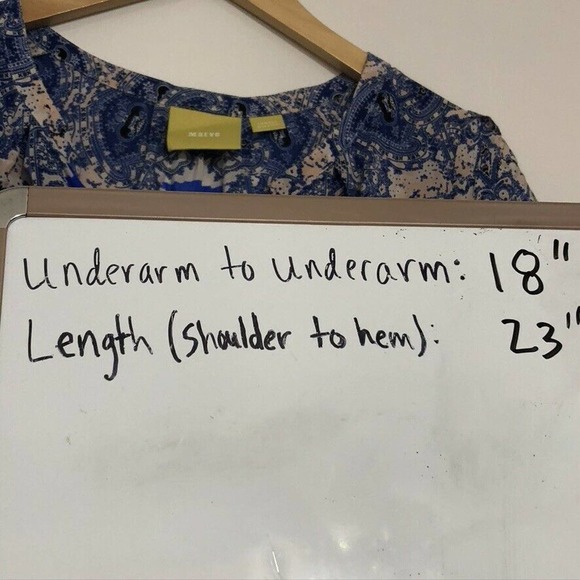 maeve
Underarm to Underarm: 18"
Length (shoulder to hem): 23"